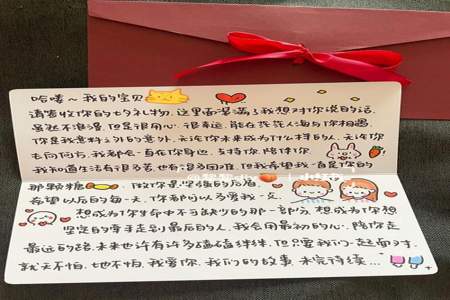 哈喽~我的宝贝
请查收你的七夕礼物,这里面浸满了我想对你说的话,
虽然不浪漫,但是很用心,很幸运,能在茫茫人海与你相遇,
你是我意料之外的意外,无论你未来成为什么样的人,无论你
去向何方,我都会一直在你身边,支持你,陪伴你,
我知道生活有很多苦也有很多困难,但我希望我一直是你的
那颗糖,做你最坚强的后盾,
希望以后的每一天,你都可以多爱我一点,
想成为你生命中不可缺少的那一部分,想成为你想
坚定的牵手走到最后的人,我会用最初的心,陪你走
最远的路,未来也许有许多磕磕绊绊,但只要我们一起面对,
就天不怕,地不怕,我爱你,我们的故事,未完待续...